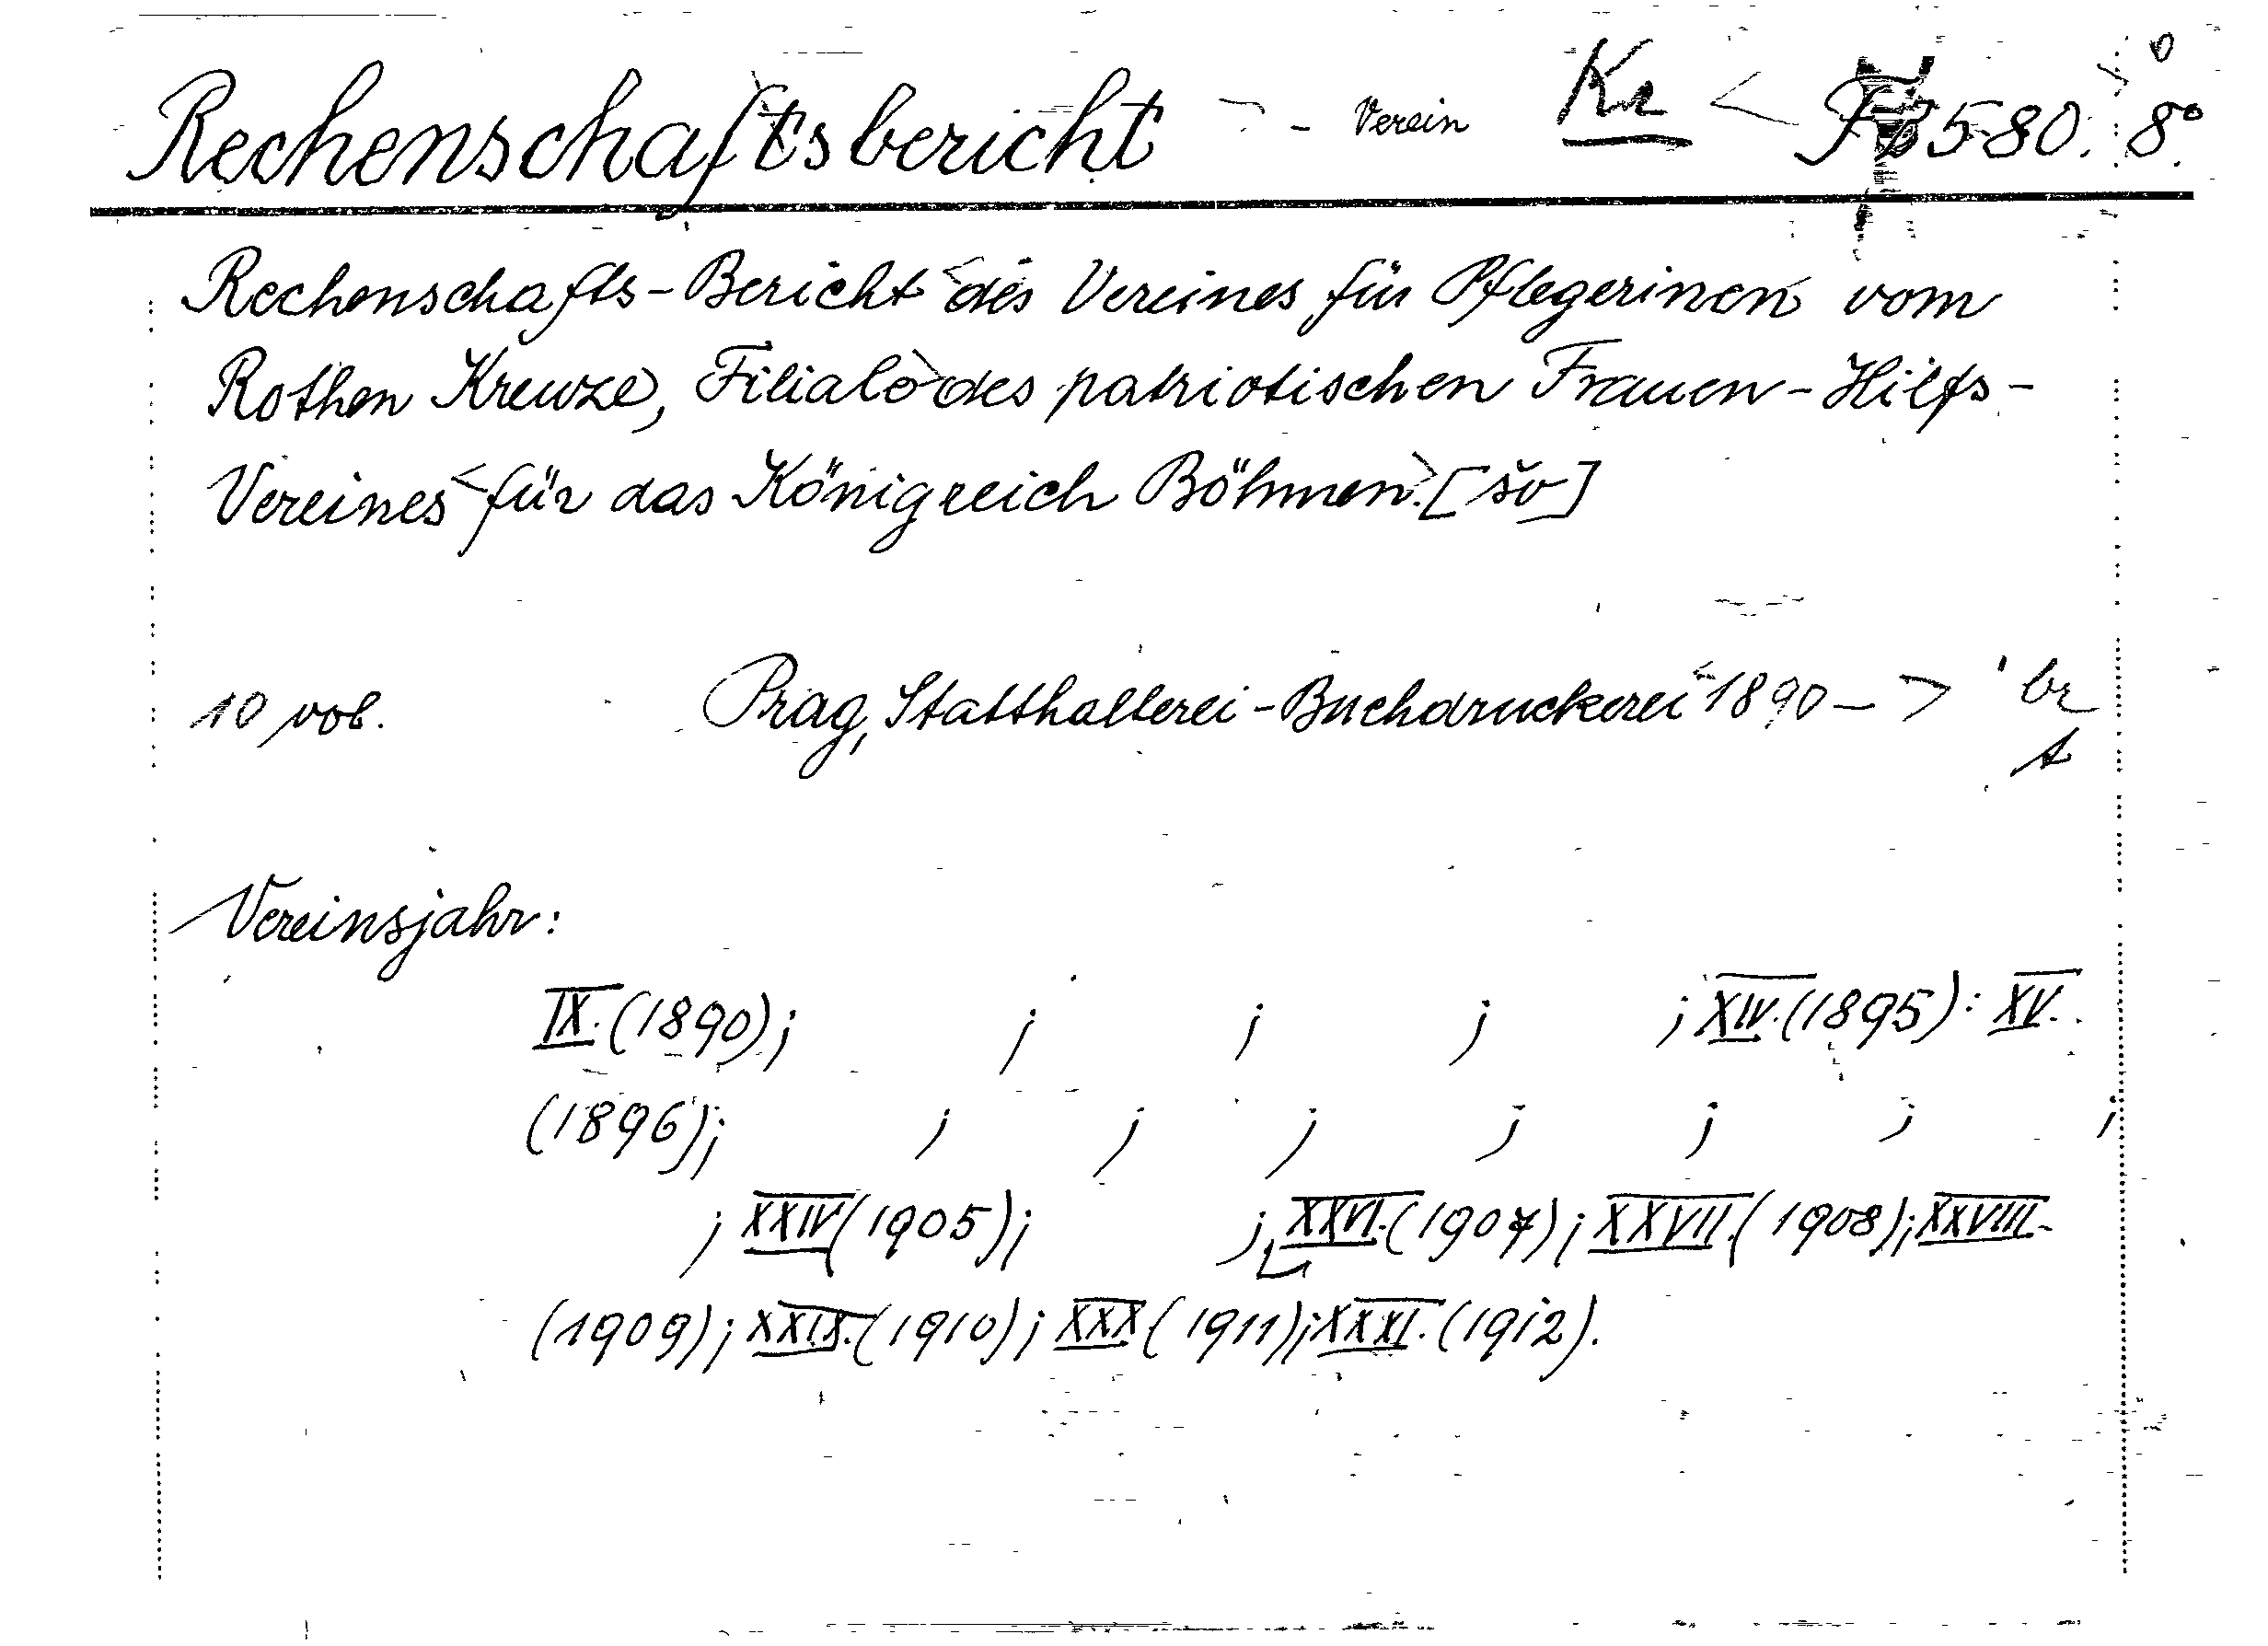 Rechenschaftsbericht - Verein Kr 8580. 8°
Rechenschafts-Bericht des Vereines für Pflegerinen vom
Rothen Kreuze, Filiale des patriotischen Frauen-Hilfs-
Vereines für das Königreich Böhmen. [šv]
10 vol. Prag, Statthalterei-Buchdruckerei 1890 - br
A
Vereinsjahr:
IX. (1890); ; ; ; ; XIV. (1895): XV.
(1896); ; ; ; ; ; ; ;
; XXIV (1905); ; XXVI. (1907); XXVII. (1908); XXVIII.
(1909); XXIX. (1910); XXX (1911); XXXI. (1912).